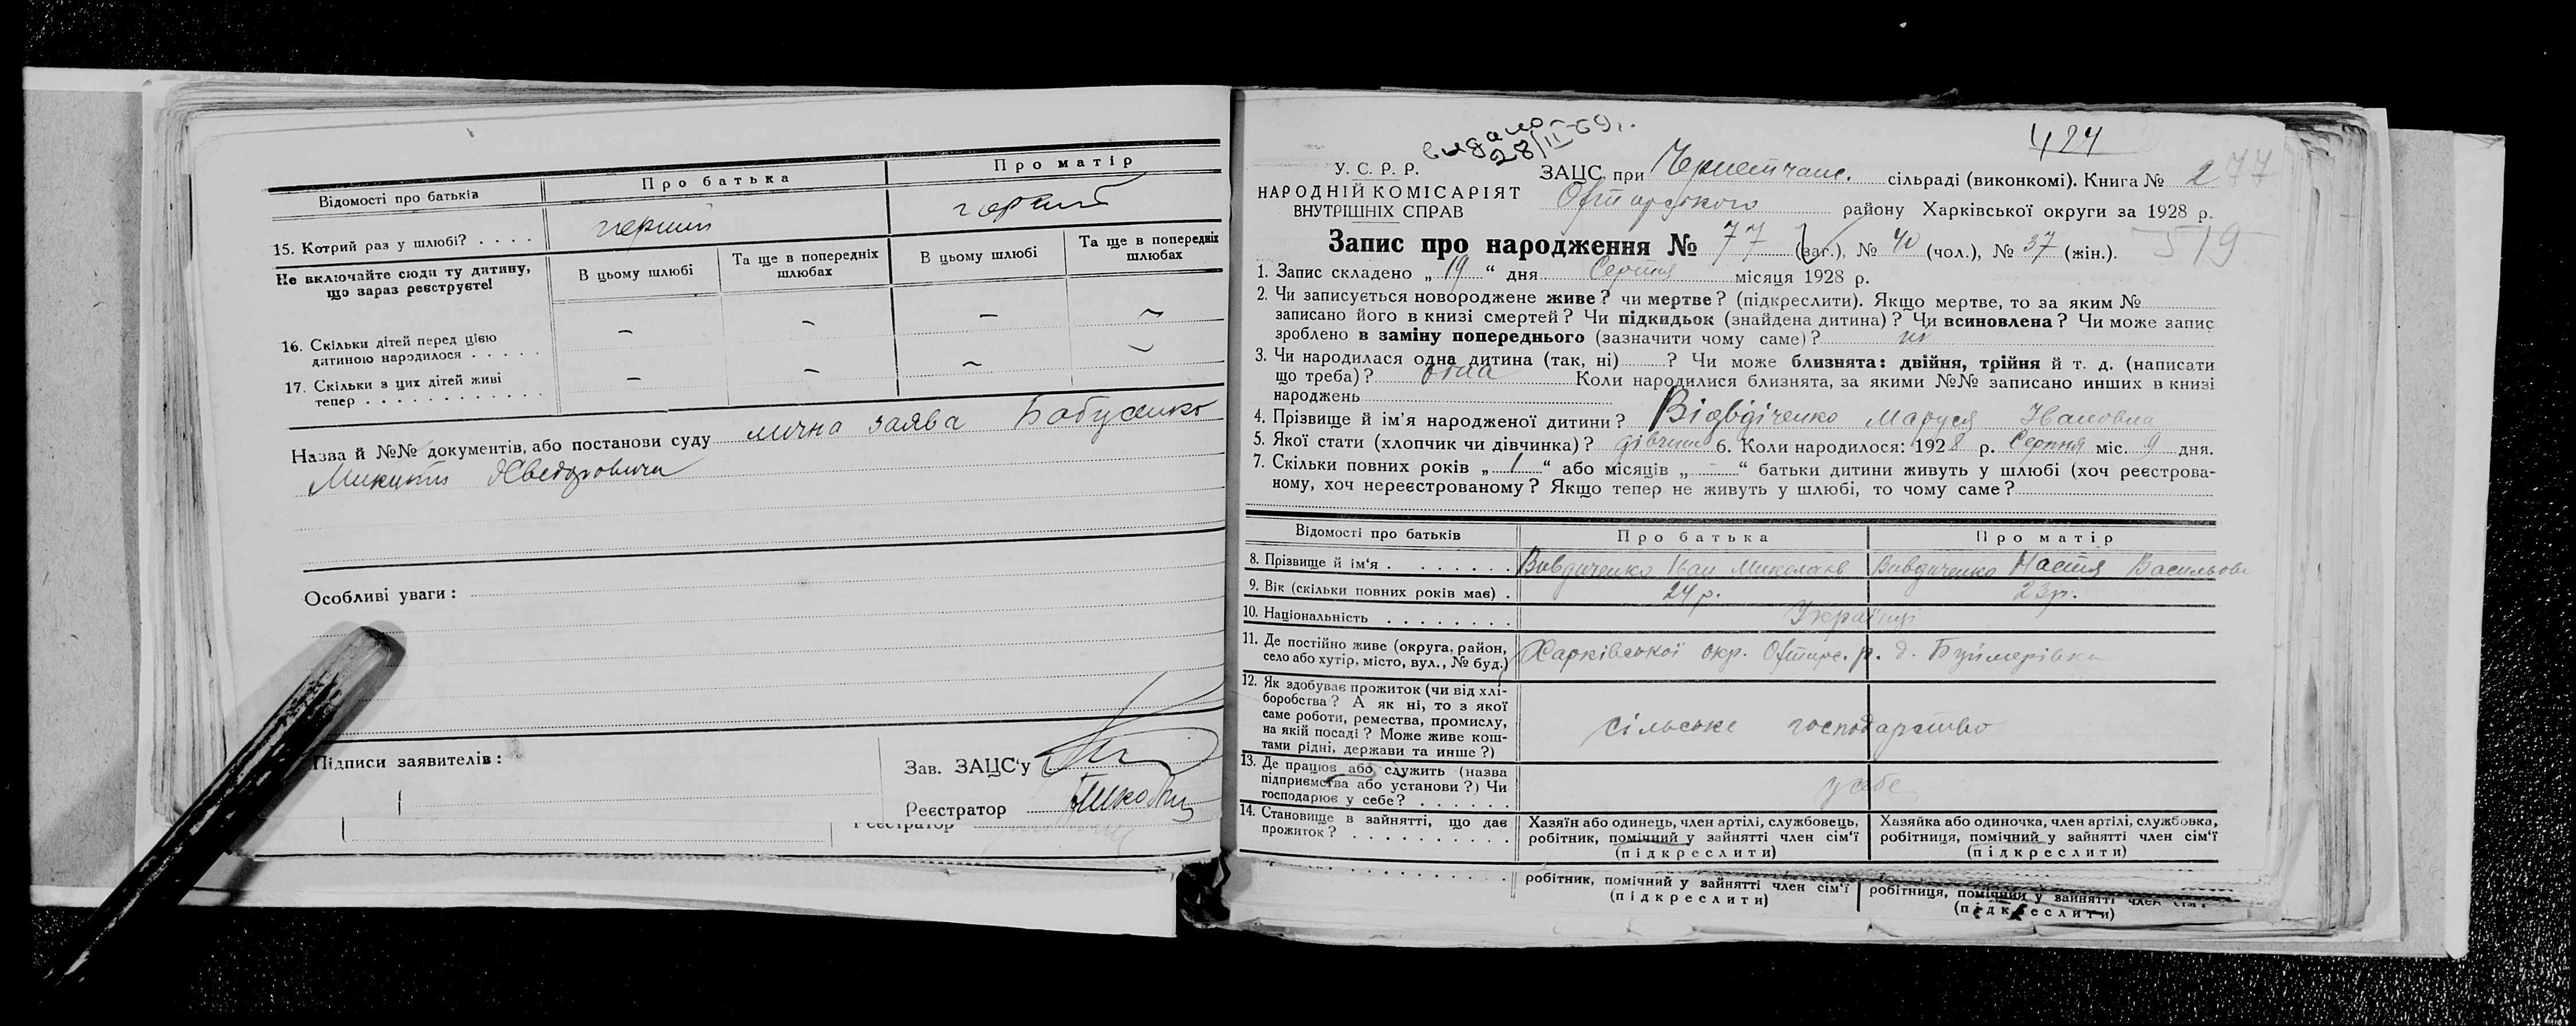 Відомості про батьків
Про батька
Про матір
15. Котрий раз у шлюбі? . . . .
перший
перший
Не включайте сюди ту дитину,
що зараз реєструєте!
В цьому шлюбі
Та ще в попередніх
шлюбах
В цьому шлюбі
Та ще в попередніх
шлюбах
16. Скільки дітей перед цією
дитиною народилося . . . . .
— — — —
17. Скільки з цих дітей живі
тепер . . . . . . . . . . . . .
— — — —
Назва й №№ документів, або постанови суду лична заява Бабусенко
Микити Хведоровича
Особливі уваги:
Підписи заявителів:
Зав. ЗАЦС'у
Реєстратор
Реєстратор
видано
28/II-69г.
424
У. С. Р. Р.
НАРОДНІЙ КОМІСАРІЯТ
ВНУТРІШНІХ СПРАВ
ЗАЦС при сільраді (виконкомі). Книга № 2 77
Охтирського району Харківської округи за 1928 р.
519
Запис про народження № 77 (заг.), № 40 (чол.), № 37 (жін.).
1. Запис складено „ 19 “ дня Серпня місяця 1928 р.
2. Чи записується новороджене живе? чи мертве? (підкреслити). Якщо мертве, то за яким №
записано його в книзі смертей? Чи підкидьок (знайдена дитина)? Чи всиновлена? Чи може запис
зроблено в заміну попереднього (зазначити чому саме)? ні
3. Чи народилася одна дитина (так, ні) ? Чи може близнята: двійня, трійня й т. д. (написати
що треба)? одна Коли народилися близнята, за якими №№ записано инших в книзі
народжень
4. Прізвище й ім'я народженої дитини? Відвідіченко Маруся Івановна
5. Якої стати (хлопчик чи дівчинка)? дівчина 6. Коли народилося: 1928 р. Серпня міс. 9 дня.
7. Скільки повних років „ 1 “ або місяців „ - “ батьки дитини живуть у шлюбі (хоч реєстрова-
ному, хоч нереєстрованому? Якщо тепер не живуть у шлюбі, то чому саме?
Відомості про батьків
Про батька
Про матір
8. Прізвище й ім'я . . . . . . . Вивдиченко Іван Миколаєв Вивдиченко Настя Васильова
9. Вік (скільки повних років має) . 24 р. 23 р.
10. Національність . . . . . . . . Українці
11. Де постійно живе (округа, район,
село або хутір, місто, вул., № буд.) Харківської окр. Охтирс. р. д. Буймерівка
12. Як здобуває прожиток (чи від хлі-
боробства? А як ні, то з якої
саме роботи, ремества, промислу,
на якій посаді? Може живе кош-
тами рідні, держави та инше?)
сільське господарство
13. Де працює або служить (назва
підприємства або установи?) Чи
господарює у себе? . . . . . .
у себе
14. Становище в зайнятті, що дає
прожиток? . . . . . . . . . .
Хазяїн або одинець, член артілі, службовець,
робітник, помічний у зайнятті член сім'ї
(підкреслити)
Хазяйка або одиночка, член артілі, службовка,
робітниця, помічний у зайнятті член сім'ї
(підкреслити)
робітник, помічний у зайнятті член сім'ї
(підкреслити)
робітниця, помічний у зайнятті член сім'ї
(підкреслити)